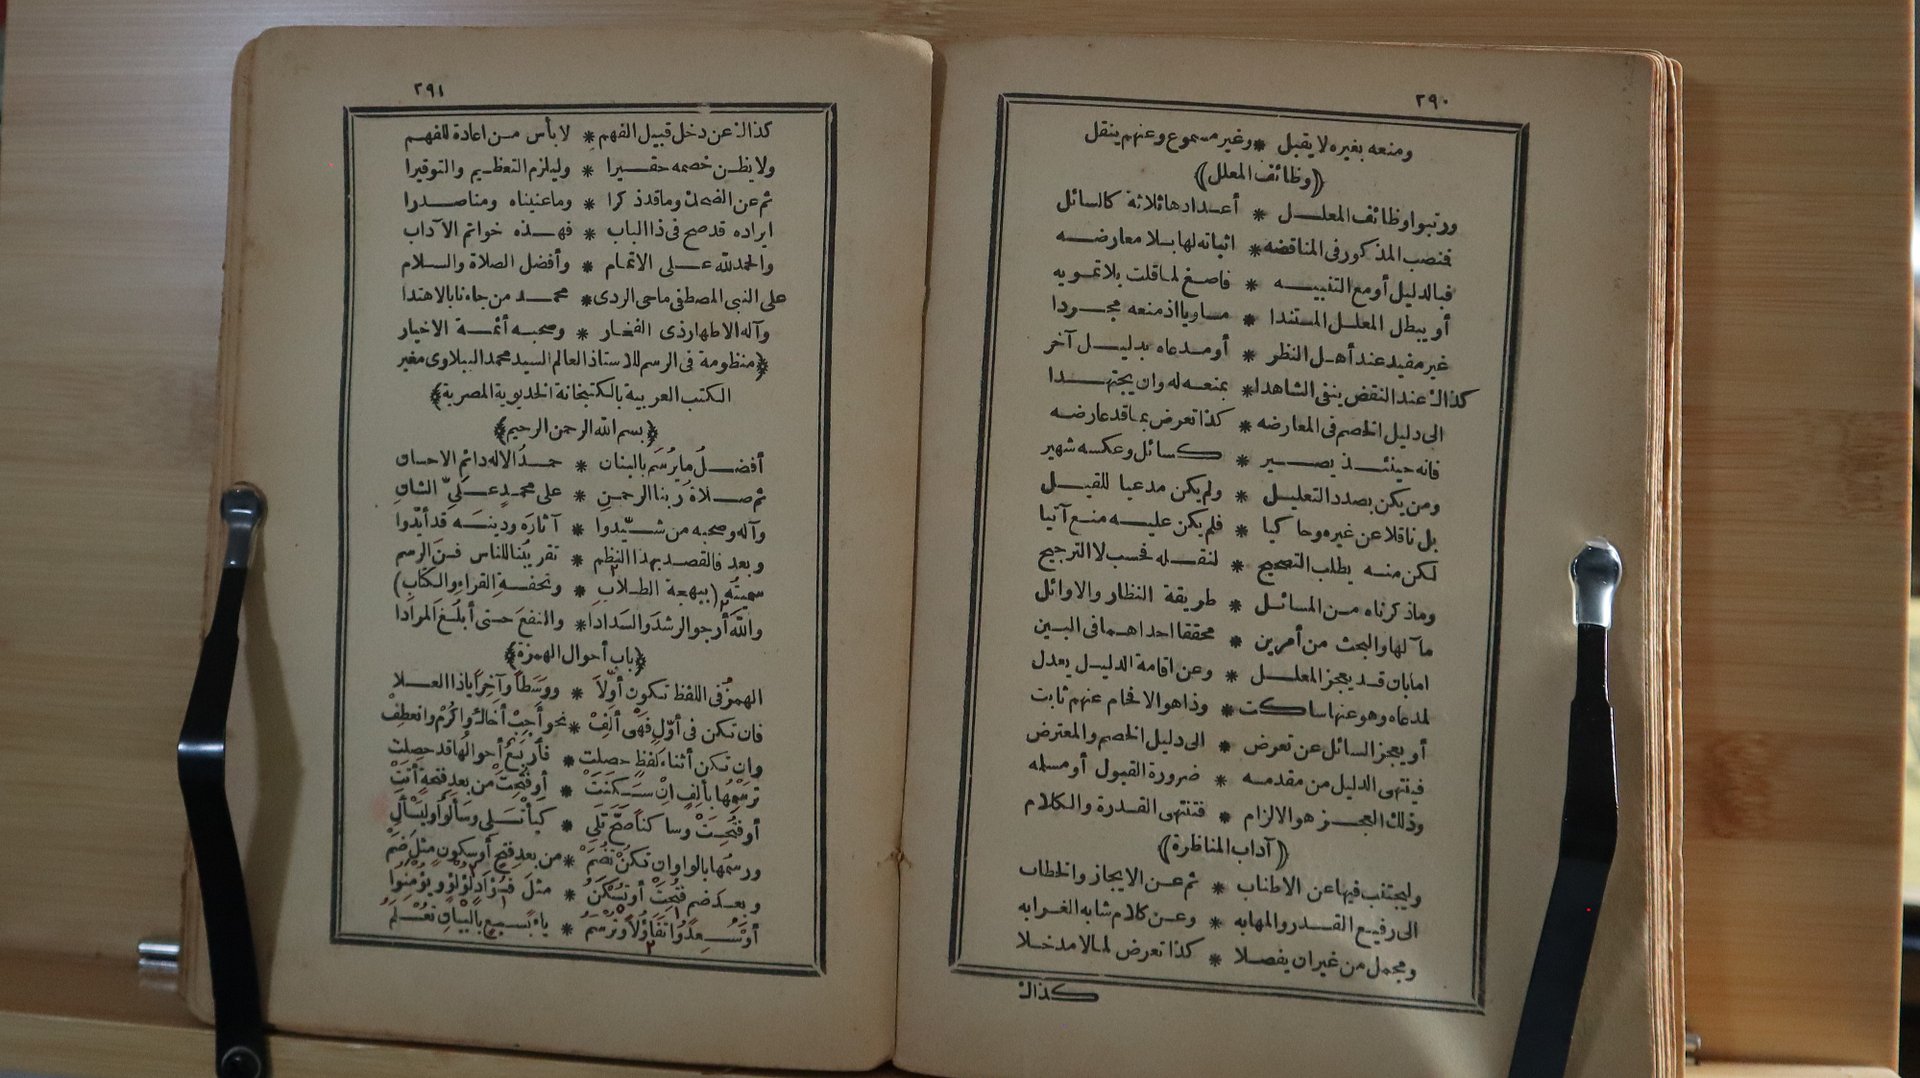 ٢٩٠
ومنعه بغيره لا يقبل * وغير مسموع وعنهم ينقل
﴿وظائف المعلل﴾
ورتبوا وظائف المعلل * أعدادها ثلاثة كالسائل
فنصب المذكور فى المناقضه * اثباته لها بلا معارضه
فبالدليل أو مع التنبيه * فاصغ لما قلت بلا تمويه
أو يبطل المعلل المستندا * مساويا اذ منعه مجردا
غير مفيد عند أهل النظر * أو مدعاه بدليل آخر
كذاك عند النقض ينفى الشاهدا * بمنعه له وان يجتهدا
الى دليل الخصم فى المعارضه * كذا تعرض بما قد عارضه
فانه حينئذ يصير * كسائل وعكسه شهير
ومن يكن بصدد التعليل * ولم يكن مدعيا للقيل
بل ناقلا عن غيره وحاكيا * فلم يكن عليه منع آتيا
لكن منه يطلب التصحيح * لنقله فحسب لا الترجيح
وماذكرناه من المسائل * طريقة النظار والاوائل
مآلها والبحث من أمرين * محققا احداهما فى البين
امابان قد يعجز المعلل * وعن اقامة الدليل يعدل
لمدعاه وهو عنها ساكت * وذا هو الافحام عنهم ثابت
أو يعجز السائل عن تعرض * الى دليل الخصم والمعترض
فينتهى الدليل من مقدمه * ضرورة القبول أو مسلمه
وذلك العجز هو الالزام * فتنتهى القدرة والكلام
﴿آداب المناظرة﴾
وليجتنب فيها عن الاطناب * ثم عن الايجاز والخطاب
الى رفيع القدر والمهابه * وعن كلام شابه الغرابه
ومجمل من غير ان يفصلا * كذا تعرض لما لا مدخلا
كذاك
٢٩١
كذاك عن دخل قبيل الفهم * لا بأس من اعادة للفهم
ولا يظن خصمه حقيرا * وليلزم التعظيم والتوقيرا
ثم عن الضحك وما قد ذكرا * وما عنيناه ومنا صدرا
ايراده قد صح فى ذا الباب * فهذه خواتم الآداب
والحمد لله على الاتمام * وأفضل الصلاة والسلام
على النبى المصطفى ماحى الردى * محمد من جاءنا بالاهتدا
وآله الاطهار ذى الفخار * وصحبه أئمة الاخيار
﴿منظومة فى الرسم للاستاذ العالم السيد محمد الببلاوى مغير
الكتب العربية بالكتبخانة الخديوية المصرية﴾
﴿بسم الله الرحمن الرحيم﴾
أفضلُ ما رُسَم بالبنان * حمدُ الاله دائم الاحسان
ثم صلاة رَبنا الرحمنِ * على محمدٍ عَلىّ الشانِ
وآله وصحبه من شيّدوا * آثارَه ودينَه قد أيّدوا
وبعد فالقصد بهذا النظم * تقريبُنا للناس فنَ الرسم
سميتُه (ببهجة الطلابِ * وتحفةِ القراءِ والكتابِ)
واللهَ أرجو الرشدَ والسَدادَا * والنفعَ حتى أبلُغَ المرادَا
﴿باب أحوال الهمزة﴾
الهمزُ فى اللفظ تكون أوّلاَ * ووَسَطاً وآخِراً ياذا العلا
فان تكن فى أوّلٍ فَهْى ألِفْ * نحو أجِبْ أخاك واكْرُمْ وانعطِفْ
وان تكن أثناءَ لفظٍ حصلت * فأربعٌ أحوالُها قد حصِلت
ترسمُها بألفٍ انْ سَكَنَتْ * أو فُتحِتَْ من بعدِ فتحةٍ أتَتْ
أو فُتحِتْ وساكناً صَحَّ تَلِى * كيأتَسلِى وسَألُوا وليَسْأَلِ
ورسمُها بالواو ان تكنْ تُضَمْ * من بعدِ فتحٍ أوسكونٍ مثلَ ضَمْ
وبعدَ ضم فُتحِتْ أو تَسْكُنُ * مثلَ فُؤادٍ لُؤلؤ ويُؤمِنُوا
أوسُعِدُوا تَفَاؤُلاً وتُرْسَمُ * ياءً بسبعٍ بالبيانِ تُعْلَمُ